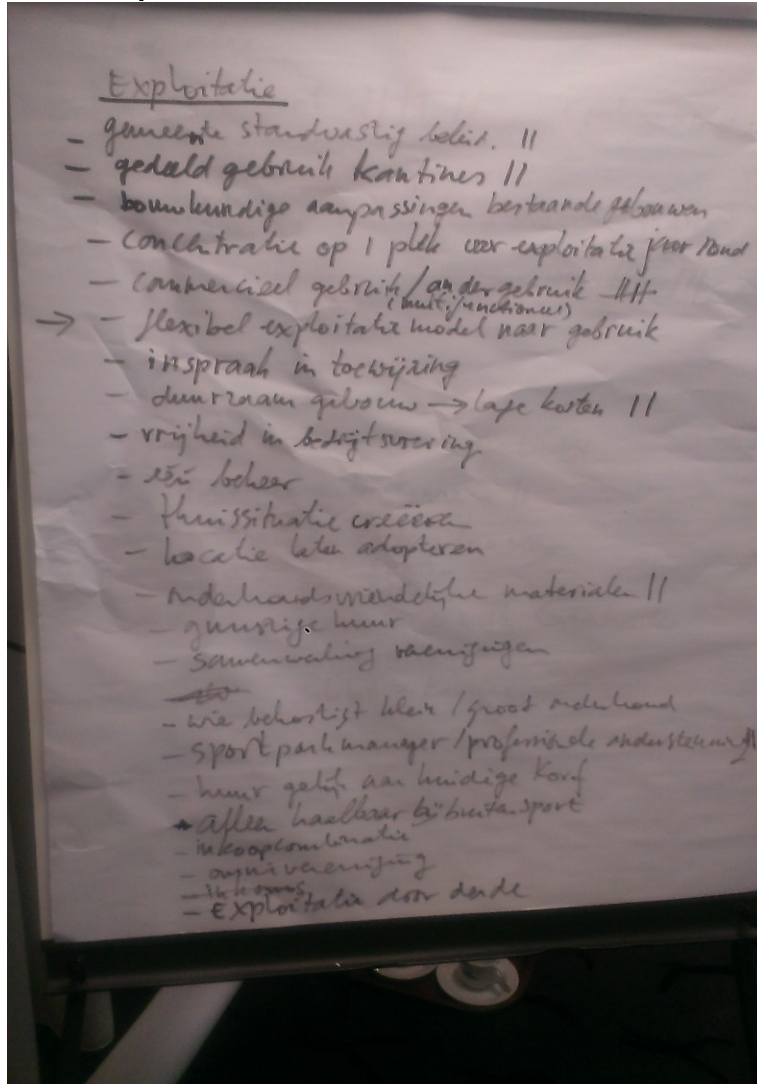 Exploitatie
- gemeente standvastig beleid. ||
- gedeeld gebruik kantines ||
- bouwkundige aanpassingen bestaande gebouwen
- concentratie op 1 plek voor exploitatie jaar rond
- commercieel gebruik / ander gebruik
(multifunctioneel)
→ - flexibel exploitatie model naar gebruik
- inspraak in toewijzing
- duurzaam gebouw → lage kosten ||
- vrijheid in bedrijfsvoering
- één beheer
- thuissituatie creëren
- locatie laten adopteren
- onderhoudsvriendelijke materialen ||
- gunstige huur
- samenwerking verenigingen
- wie bekostigt klein / groot onderhoud
- sportparkmanager / professionele ondersteuning ||
- huur gelijk aan huidige
- alleen haalbaar bij buitensport
- inkoopcombinatie
- omnivereniging
- exploitatie door derde